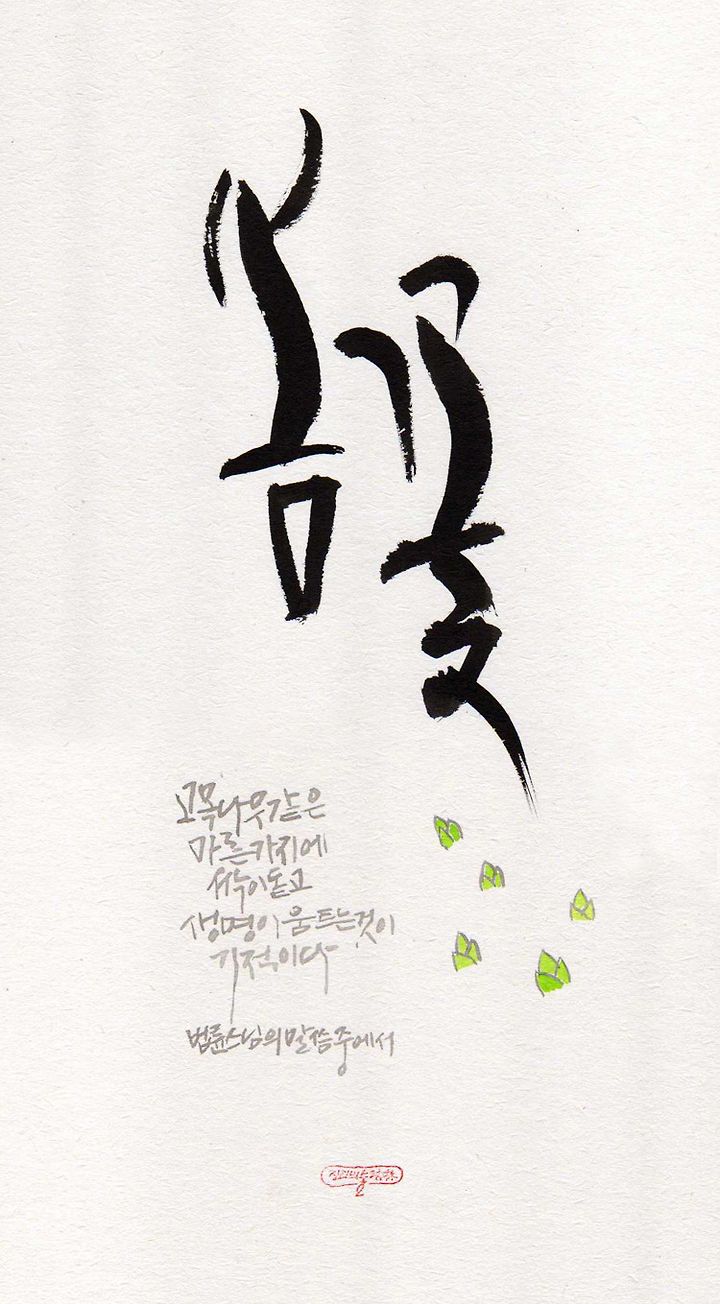 봄꽃
고목나무같은
마른가지에
싹이돋고
생명이움트는것이
기적이다
법륜스님의말씀중에서